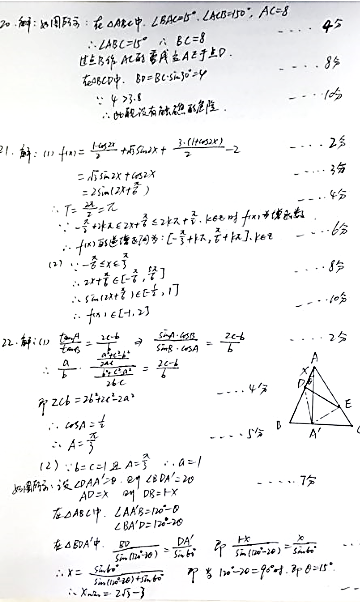 20. 解: 如图所示: 在△ABC中, ∠BAC=15°, ∠ACB=150°, AC=8 ---- 4分
∴∠ABC=15° ∴BC=8
过点B作AC的垂线交AC于点D.
在△BCD中, BD=BC·sin30°=4 ---- 8分
∵ 4>3.8
∴此船没有触礁的危险. ---- 10分
21. 解: (1) f(x)= (1-cos2x)/2 +√3sin2x+ 3·(1+cos2x)/2 -2 ---- 2分
=√3sin2x+cos2x ---- 3分
=2sin(2x+π/6)
∴T=2π/2=π ---- 4分
∵ -π/2+2kπ≤2x+π/6≤2kπ+π/2, k∈Z时 f(x)为增函数.
∴f(x)的递增区间为: [-π/3+kπ, π/6+kπ], k∈Z ---- 6分
(2) ∵ -π/6≤x≤π/3
∴2x+π/6∈[-π/6, 5π/6] ---- 8分
∴sin(2x+π/6)∈[-1/2, 1]
∴f(x)∈[-1, 2] ---- 10分
22. 解: (1) tanA/tanB = (2c-b)/b ⇒ sinA·cosB/sinB·cosA = (2c-b)/b ---- 2分
∴ a/b · (a²+c²-b²)/2ac / (b²+c²-a²)/2bc = (2c-b)/b
即 2cb=2b²+2c²-2a² ---- 4分
∴cosA=1/2
∴A=π/3 ---- 5分
A
X
D
E
B
A'
C
(2) ∵b=c=1且A=π/3 ∴a=1
如图所示: 设∠DAA'=θ, 则∠BDA'=2θ ---- 7分
AD=x 则DB=1-x
在△ABC中, ∠AA'B=120°-θ
∠BA'D=120°-2θ
在△BDA'中, BD/sin(120°-2θ) = DA'/sin60° 即 (1-x)/sin(120°-2θ) = x/sin60°
∴x= sin60°/(sin(120°-2θ)+sin60°) 即当120°-2θ=90°时, 即θ=15°
∴xmin=2√3-3